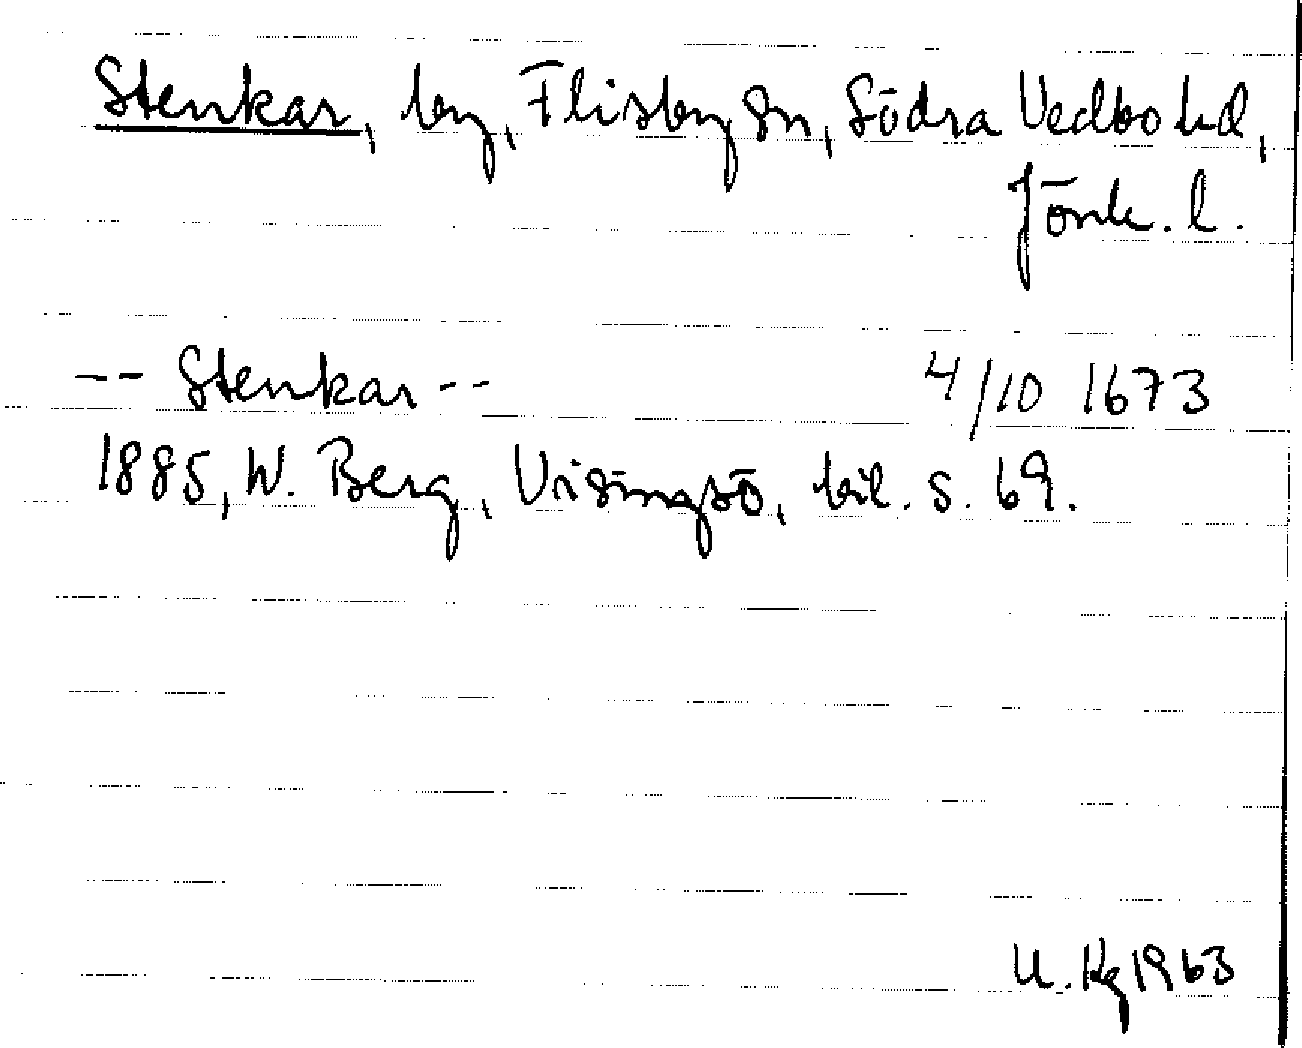 Stenkar, by, Flisby sn, Södra Vedbo hd,
Jönk. l.
-- Stenkar -- 4/10 1673
1885, W. Berg, Visingsö, bil. s. 69.
U. Kg 1963